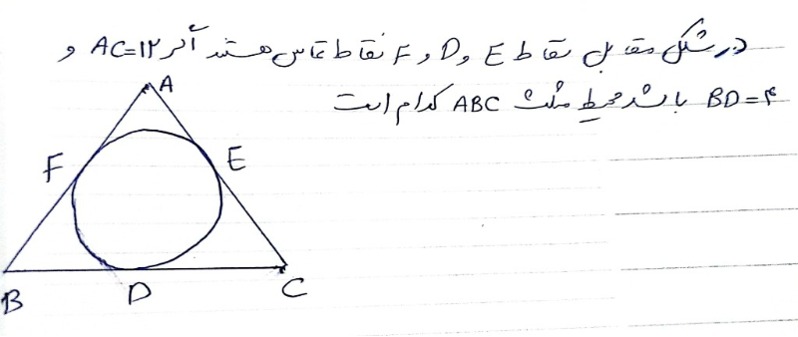 در شکل مقابل نقاط E و D و F نقاط تماس هستند اگر AC=۱۲ و
BD=۴ باشد محیط مثلث ABC کدام است
A
F
E
B
D
C